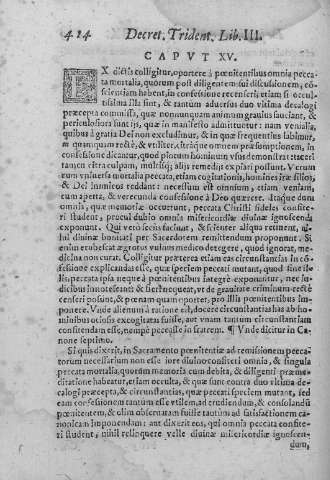 414 Decret. Trident. Lib. III.
CAPVT XV.
EX dictis colligitur, oportere à pœnitentibus omnia pecca-
ta mortalia, quorum post diligentem sui discussionem, cõ-
scientiam habent, in confessione recenseri, etiam si occul-
tissima illa sint, & tantùm aduersus duo vltima decalogi
præcepta commissa, quæ nonnunquam animum grauiùs sauciant, &
periculosiora sunt ijs, quæ in manifesto admittuntur: nam venialia,
quibus à gratia Dei non excludimur, & in quæ frequentiùs labimur,
quanquam rectè, & vtiliter, citràque omnem præsumptionem, in
confessione dicantur, quod piorum hominum vsus demonstrat: taceri
tamen citra culpam, multisq; alijs remedijs expiari possunt. Verùm
cùm vniuersa mortalia peccata, etiam cogitationis, homines iræ filios,
& Dei inimicos reddant: necessum est omnium, etiam veniam,
cum aperta, & verecunda confessione à Deo quærere. Itaque dum
omnia, quæ memoriæ occurrunt, peccata Christi fideles confite-
ri student, procul dubio omnia misericordiæ diuinæ ignoscenda
exponunt. Qui verò secùs faciunt, & scienter aliqua retinent, ni-
hil diuinæ bonitati per Sacerdotem remittendum proponunt. Si
enim erubescat ægrotus vulnus medico detegere, quod ignorat, me-
dicina non curat. Colligitur præterea etiam eas circumstantias in cõ-
fessione explicandas esse, quæ speciem peccati mutant, quod sine il-
lis, peccata ipsa neque à pœnitentibus integrè exponantur, nec iu-
dicibus innotescant; & fieri nequeat, vt de grauitate criminum rectè
censeri possint, & pœnam quam oportet, pro illis pœnitentibus im-
ponere. Vnde alienum à ratione est, docere circumstantias has ab ho-
minibus otiosis excogitatas fuisse, aut vnam tantùm circumstantiam
confitendam esse, nempè peccasse in fratrem. ¶ Vnde dicitur in Ca-
none septimo.
Si quis dixerit, in Sacramento pœnitentiæ ad remissionem pecca-
torum necessarium non esse iure diuino confiteri omnia, & singula
peccata mortalia, quorum memoria cum debita, & diligenti præme-
ditatione habeatur, etiam occulta, & quæ sunt contra duo vltima de-
calogi præcepta, & circumstantias, quæ peccati speciem mutant, sed
eam confessionem tantùm esse vtilem, ad erudiendum, & consolandũ
pœnitentem, & olim obseruatam fuisse tantùm ad satisfactionem ca-
nonicam imponendam: aut dixerit eos, qui omnia peccata confite-
ri student, nihil relinquere velle diuinæ misericordiæ ignoscen-
dum,